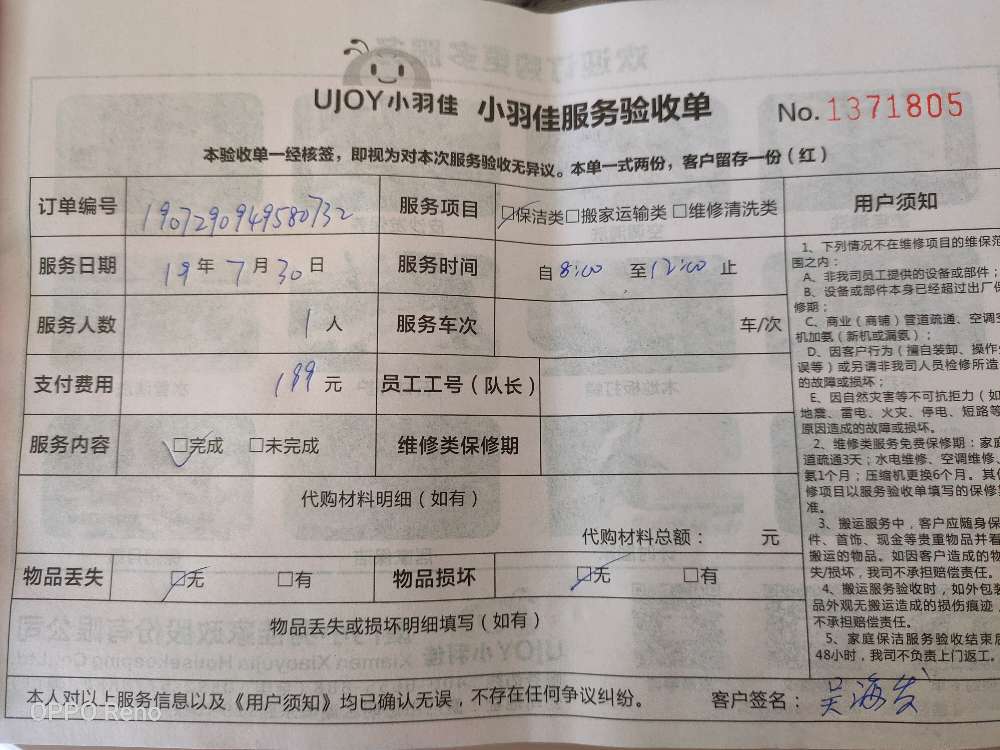 UJOY小羽佳 小羽佳服务验收单 No.1371805
本验收单一经核签，即视为对本次服务验收无异议。本单一式两份，客户留存一份（红）
订单编号 1907290949580732 服务项目 □保洁类□搬家运输类□维修清洗类
服务日期 19年7月30日 服务时间 自8:00 至12:00止
服务人数 1人 服务车次 车/次
支付费用 199元 员工工号（队长）
服务内容 □完成 □未完成 维修类保修期
代购材料明细（如有）
代购材料总额： 元
物品丢失 □无 □有 物品损坏 □无 □有
物品丢失或损坏明细填写（如有）
本人对以上服务信息以及《用户须知》均已确认无误，不存在任何争议纠纷。 客户签名：吴海发
用户须知
1、下列情况不在维修项目的维保范
围之内：
A、非我司员工提供的设备或部件；
B、设备或部件本身已经超过出厂保
修期；
C、商业（商铺）管道疏通、空调
机加氨（新机或漏氨）；
D、因客户行为（擅自装卸、操作
误等）或另请非我司人员检修所造
的故障或损坏；
E、因自然灾害等不可抗拒力（如
地震、雷电、火灾、停电、短路等
原因造成的故障或损坏。
2、维修类服务免费保修期：家庭
道疏通3天；水电维修、空调维修、
氨1个月；压缩机更换6个月。其
修项目以服务验收单填写的保修
准。
3、搬运服务中，客户应随身保
件、首饰、现金等贵重物品并看
搬运的物品。如因客户造成的物
失/损坏，我司不承担赔偿责任。
4、搬运服务验收时，如外包装
品外观无搬运造成的损伤痕迹，
不承担赔偿责任。
5、家庭保洁服务验收结束后
48小时，我司不负责上门返工。
OPPO Reno